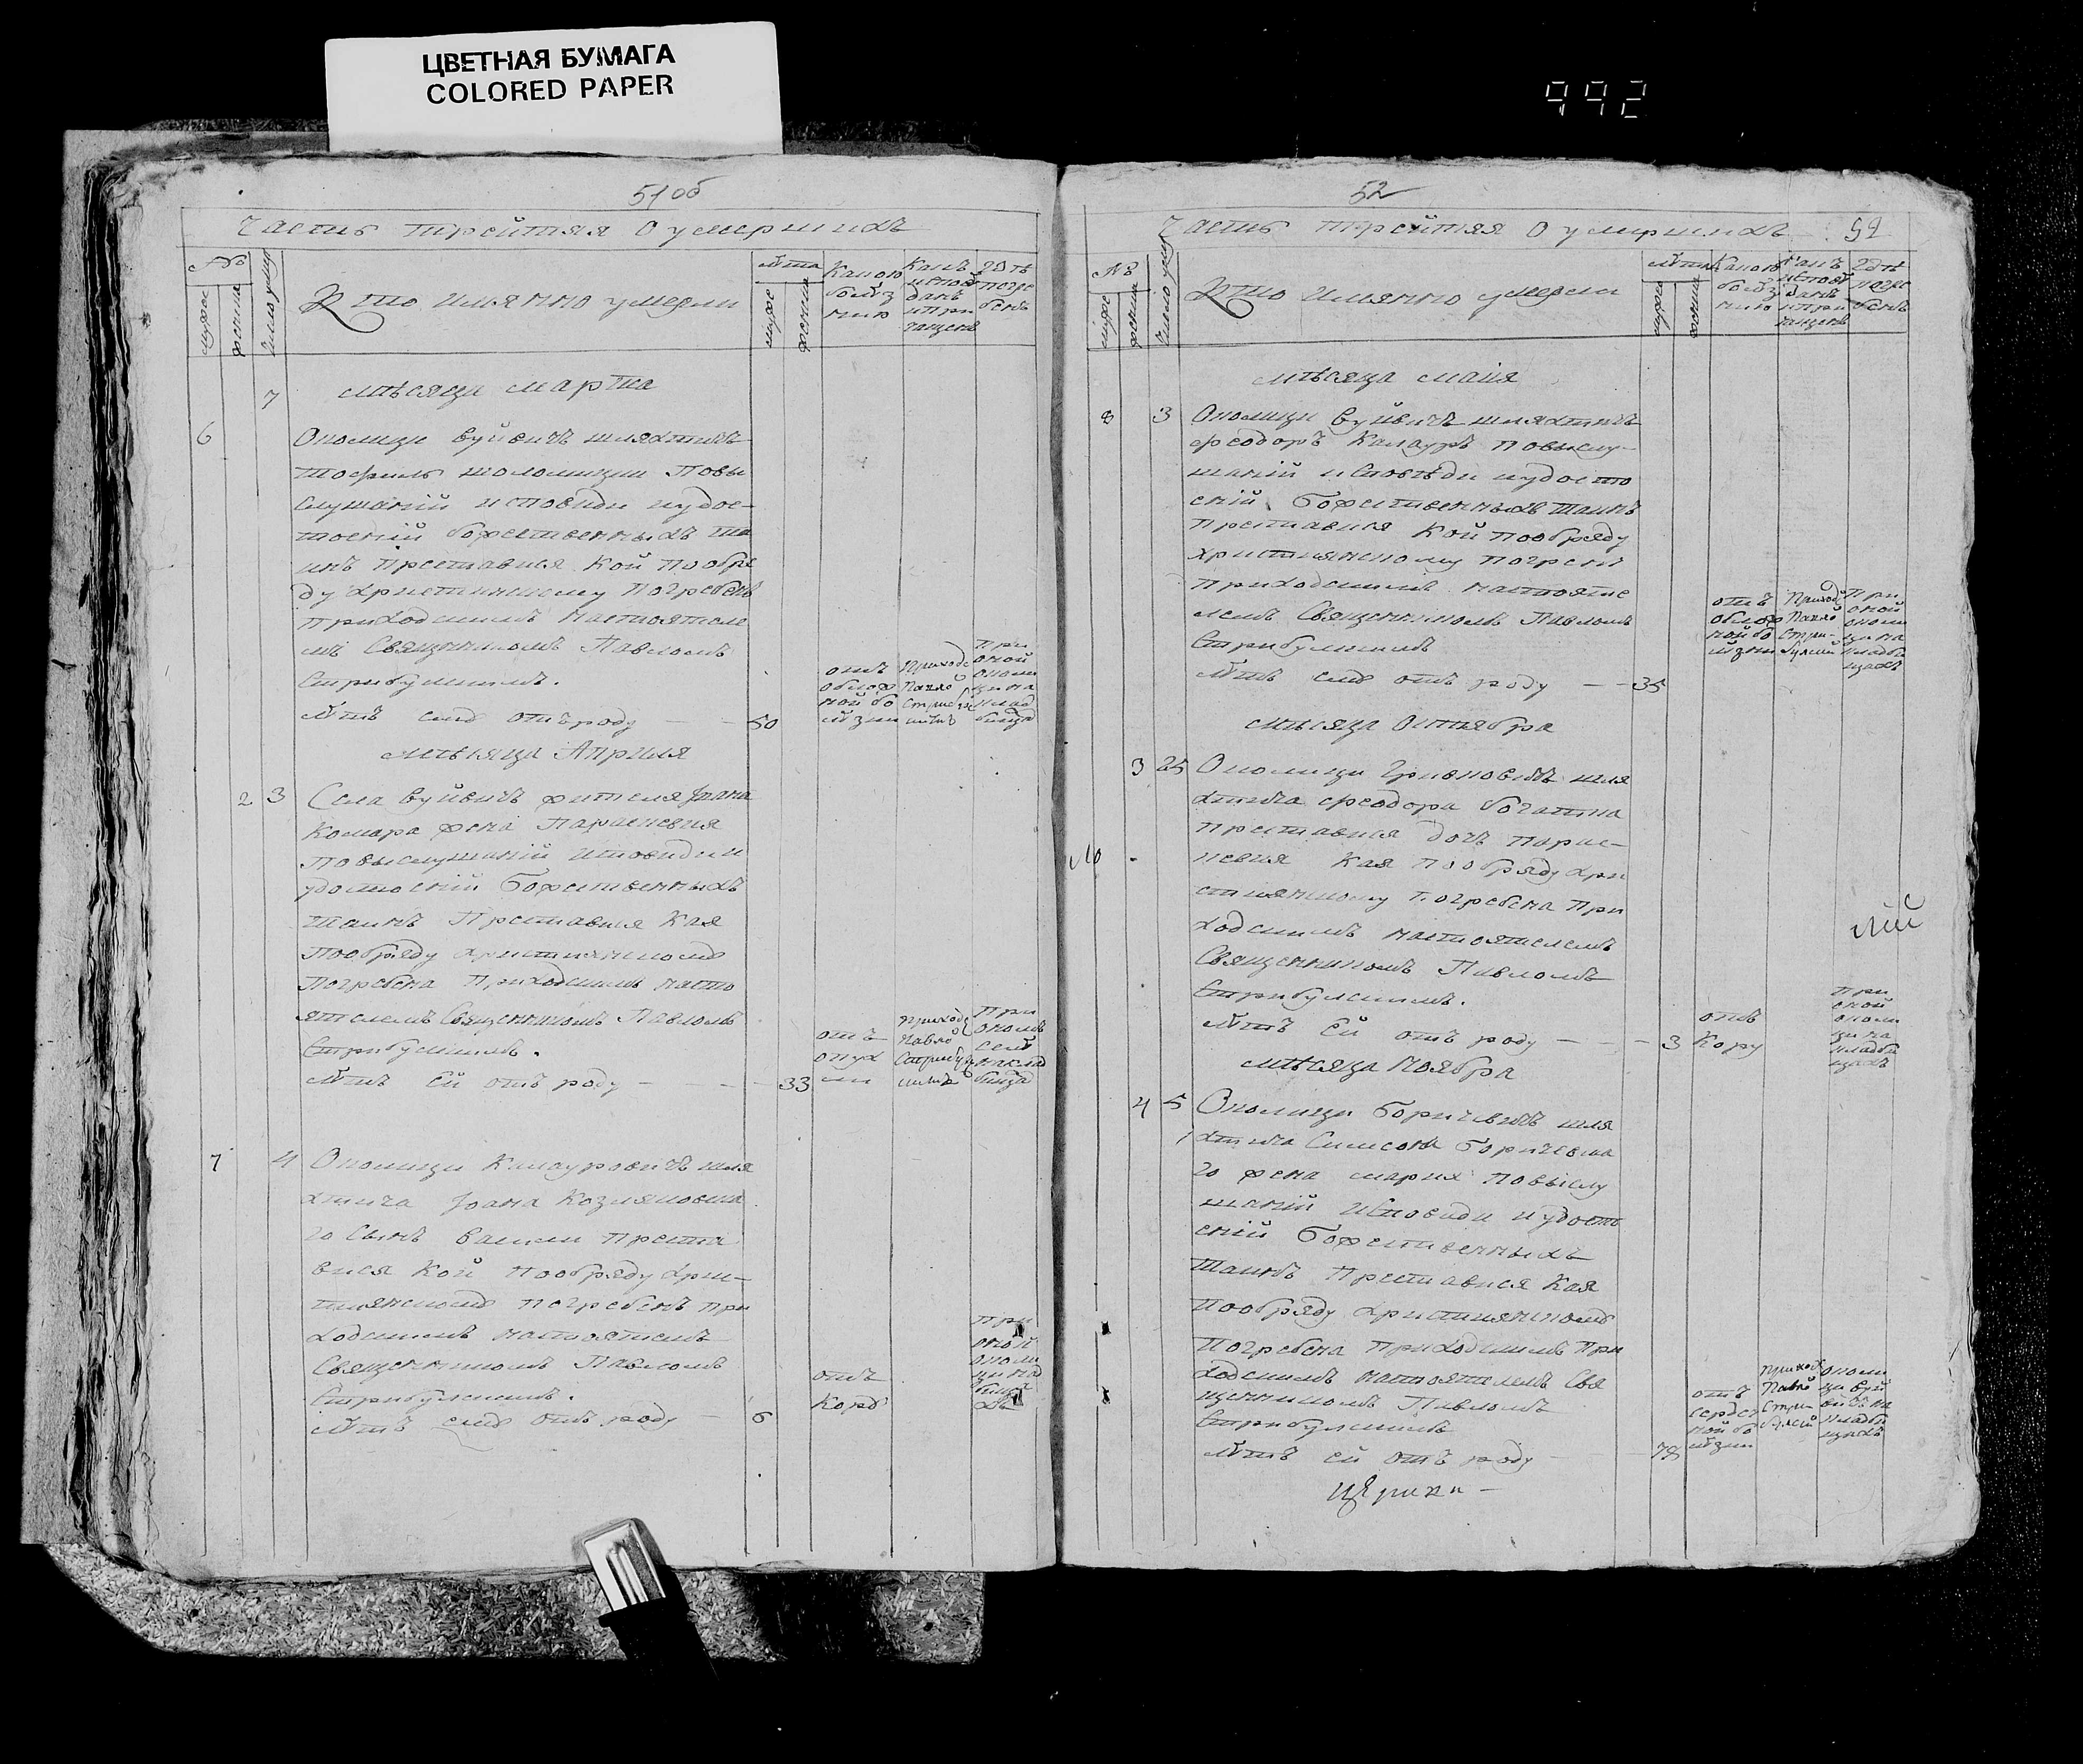 ЦВЕТНАЯ БУМАГА
COLORED PAPER
992
51об
Часть третйтяя О умершихъ
№
мужес
женска
Число умер
Кто имянно умерли
лѣта
мужес
женска
Какою
болѣз
нию
Кемъ
исповѣ
данъ
и при
чащенъ
Гдѣ
погре
бенъ
мѣсяца марта
7
6
Околици вуйвичъ шляхтичъ
Тофиль шоломицки Повы
слушаний исповиди иудос-
тоений божественныхъ та
инъ преставися Кой пообря
ду християнскому погребенъ
приходскимъ настоятеле
мъ Священникомъ Павломъ
Стрибульскимъ.
лѣтъ ему отъ роду — — 50
отъ
облож
ной бо
лѣзни
Приходс
Павло
При
оной
околи
ци на
клад
бищах
мѣсяца Априля
2 3
Села вуйвичъ жителя Іоана
Комара жена Параскевия
повыслушаний исповиди и
удостоений Божественныхъ
таинъ Преставися Кая
пообряду християнскому
погребена Приходскимъ насто
ятелемъ Священникомъ Павломъ
Стрибульскимъ.
лѣтъ Ей отъ роду — — — 33
отъ
опух
ли
Приходс
Павло
При
ономъ
селѣ
на клад
бищах
7 4
Околици Кацуровичъ шля
хтича Іоана Козляковска
го Сынъ Василий Преста
вися Кой пообряду Хрис-
тиянскому погребенъ при
ходскимъ настоятелемъ
Священникомъ Павломъ
Стрибульскимъ.
лѣтъ ему отъ роду — 6
отъ
Кору
При
оной
околи
ци на
клад
бища
хъ
52
Часть третйтяя О умершихъ 52
№
мужес
женска
Число умер
Кто имянно умерли
лѣта
мужес
женска
Какою
болѣз
нию
Кемъ
исповѣ
данъ
и при
чащенъ
Гдѣ
погре
бенъ
мѣсяца маия
8 3
Околици вуйвичъ шляхтичъ
Феодоръ Кацуръ повыслу-
шаний исповѣди иудосто
ений Божественныхъ таинъ
преставися Кой пообряду
християнскому погребен
приходскимъ настояте
лемъ Священникомъ Павломъ
Стрибульскимъ
лѣтъ ему отъ роду — — 35
отъ
облож
ной бо
лѣзни
Приходс
Павло
Стри-
булский
При
оной
околи
ци на
кладби
щахъ
мѣсяца Октября
3 25
Околици Гриоковичъ шля
хтича Феодора Богатка
преставися дочъ Парас-
кевия Кая пообряду Хри
стиянскому погребена При
ходскимъ настоятелемъ
Священникомъ Павломъ
Стрибульскимъ.
лѣтъ Ей отъ роду — — — 3
отъ
Кору
При
оной
околи
ци на
кладби
щахъ
мѣсяца Ноября
4 5
Околици Боричевичъ шля
хтича Симеона Боричевска
го жена мария повыслу
шаний исповиди иудосто
ений Божественныхъ
таинъ Преставися Кая
пообряду християнскому
погребена Приходскимъ При
ходскимъ настоятелемъ Свя
щенникомъ Павломъ
Стрибульскимъ
лѣтъ ей отъ роду — 78
отъ
сердеч
ной бо
лѣзни
Приход
Павло
Стри-
булский
околи
ци вуй
вичъ на
кладби
щахъ